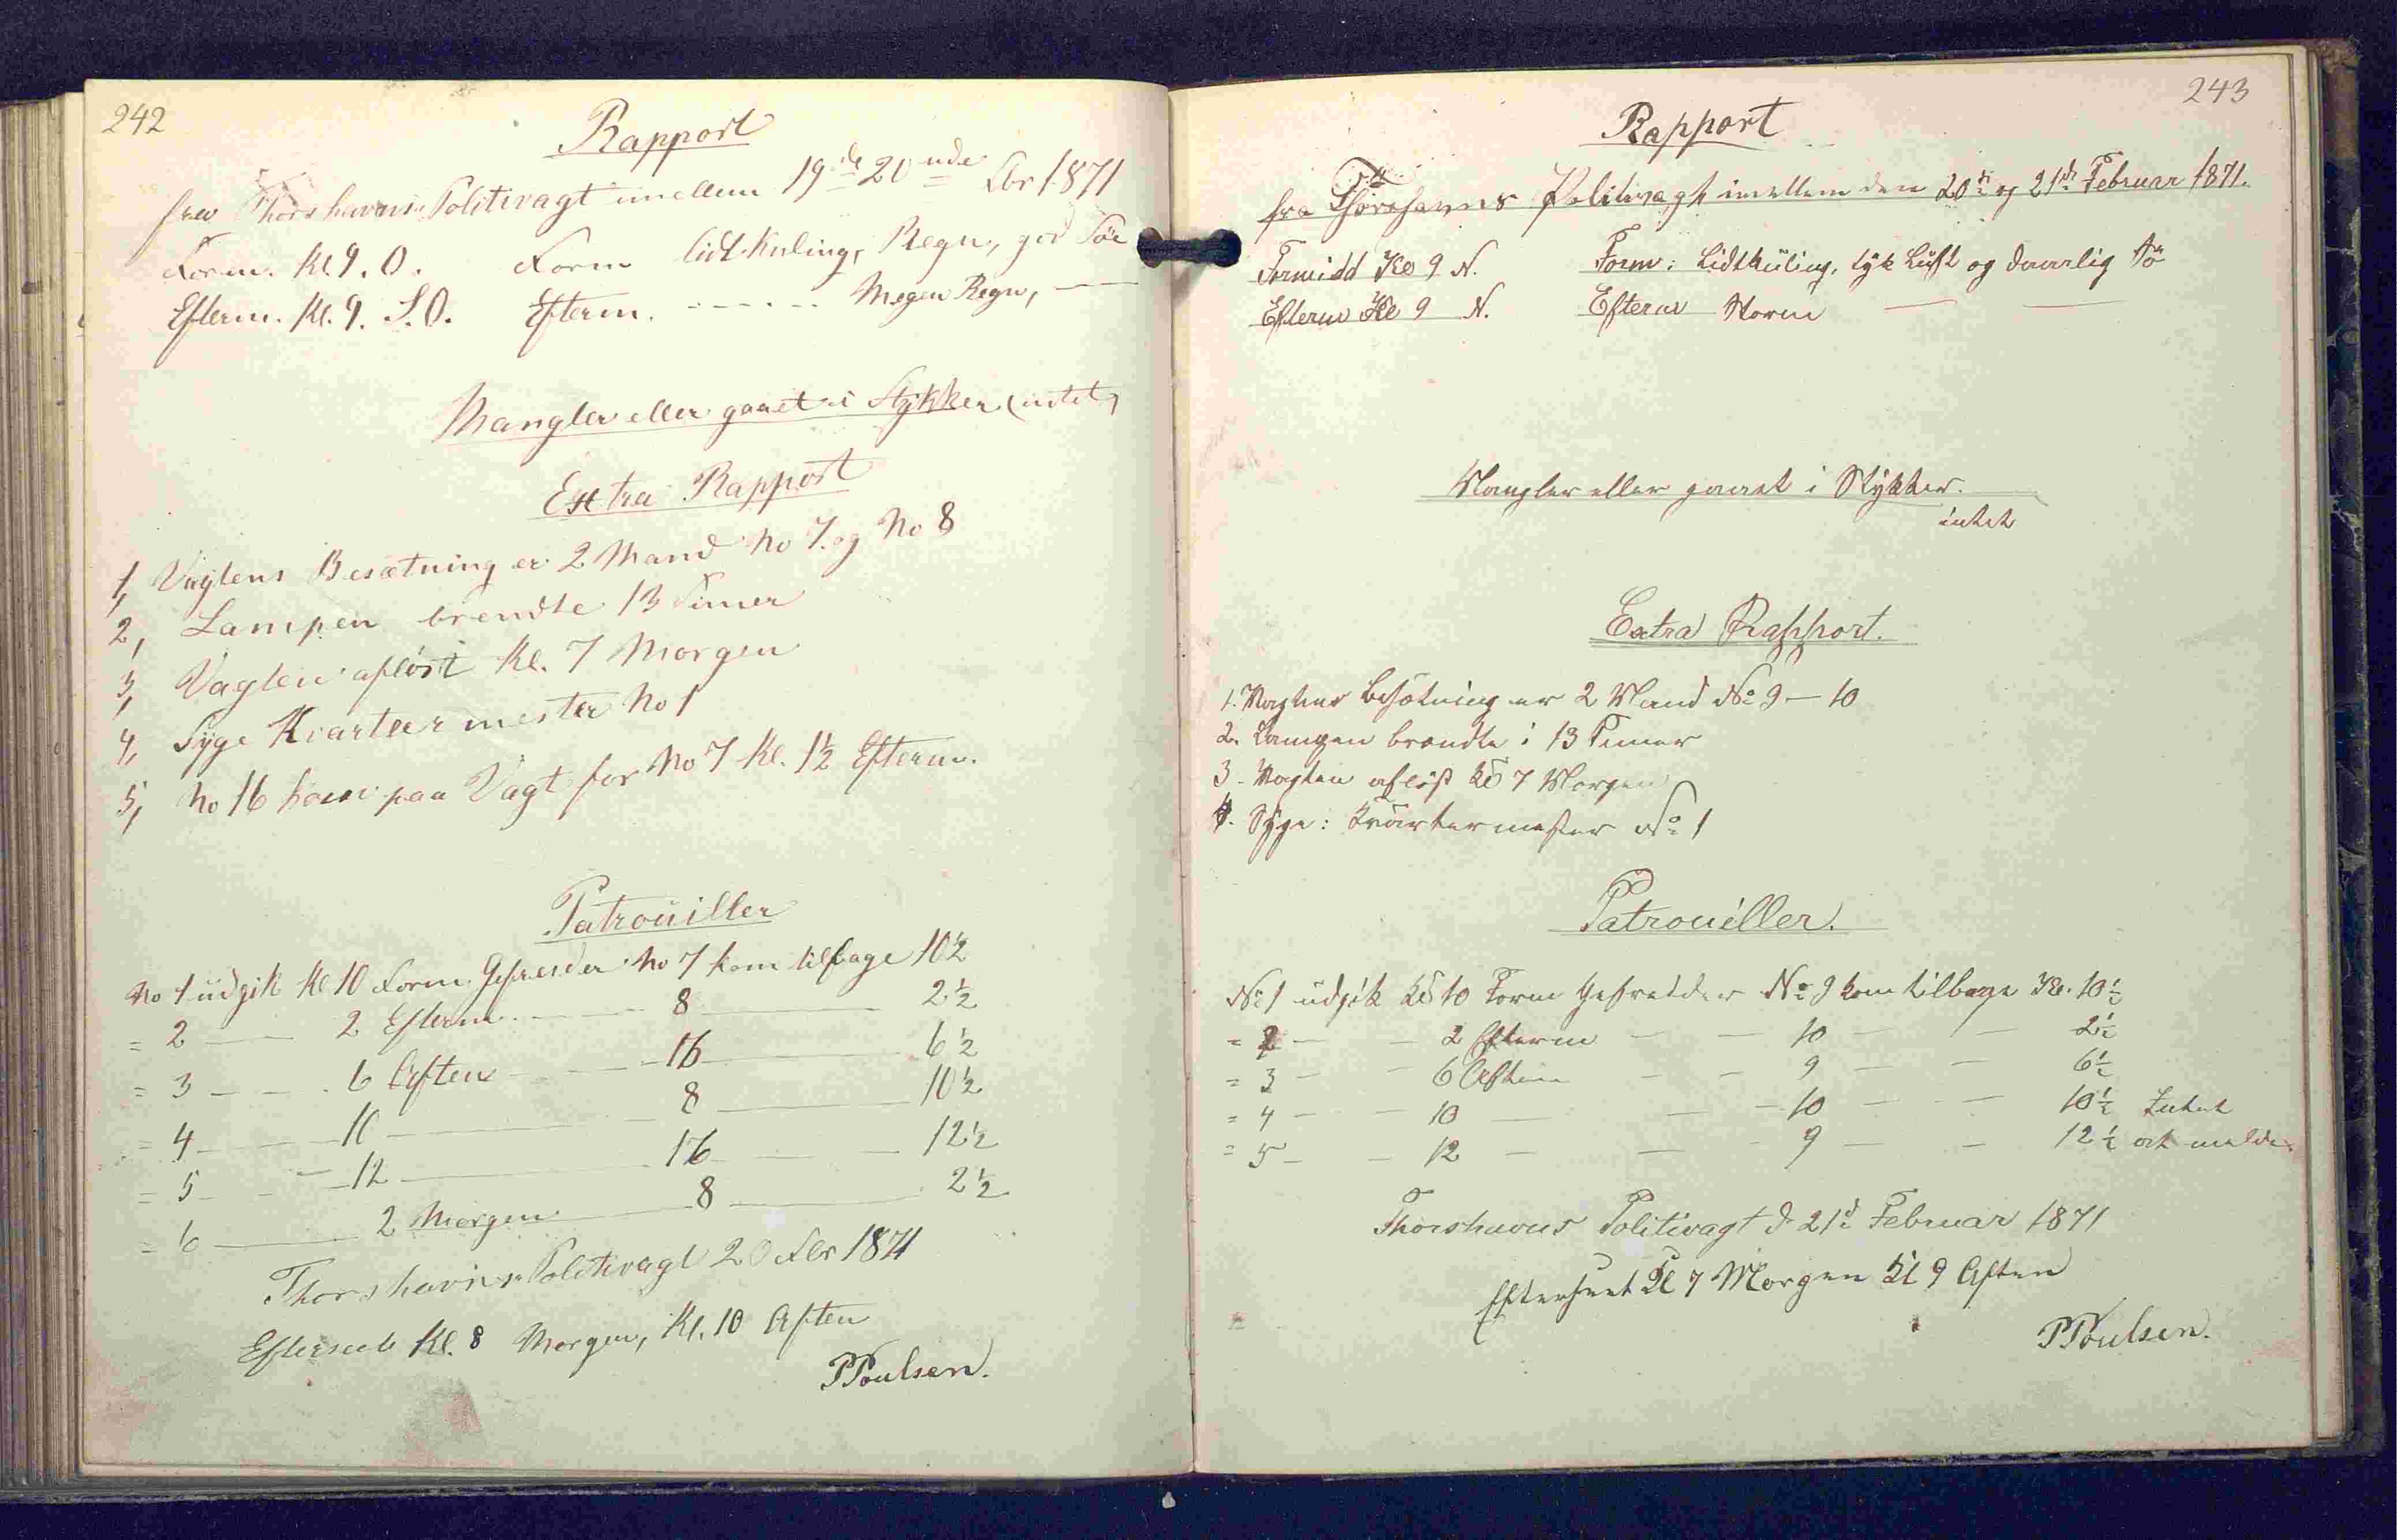 242
Rapport
fra Thorshavns Politivagt imellem 19de 20nde Fbr 1871
Form. Kl 9. O. Form lidt Kuling, Regn, god Söe
Efterm. Kl. 9. S.O. Efterm. - - - - - - Megen Regn, —
Mangler eller gaaet i Stykker (intet)
Extra Rapport
1, Vagtens Besætning er 2 Mand No 7. og No 8
2, Lampen brendte 13 Timer
3, Vagten aflöst Kl. 7 Morgen
4, Syge Kvarteermester No 1
5, No 16 kom paa Vagt for No 7 Kl. 1½ Efterm.
Patrouiller
No 1 udgik Kl 10 Form. Gefreider No 7 kom tilbage 10½
= 2 — 2 Efterm. — 8 — 2½
= 3 — 6 Aften — 16 — 6½
= 4 — 10 — 8 — 10½
= 5 — 12 — 16 — 12½
= 6 — 2 Morgen — 8 — 2½
Thorshavns Politivagt 20 Fbr 1871
Efterseet Kl. 8 Morgen, Kl. 10 Aften
PPoulsen.
243
Rapport
fra Thorshavns Politivagt imellem den 20de og 21de Februar 1871.
Formidd Kl 9 N. Form: Lidt Kuling, tyk Luft og daarlig Sö
Efterm Kl 9 N. Efterm Storm — —
Mangler eller gaaet i Stykker.
intet
Extra Rapport.
1. Vagtens Besætning er 2 Mand No 9 — 10
2. Lampen brændte i 13 Timer
3. Vagten aflöst Kl 7 Morgen
4. Syge: Kvartermester No 1
Patrouiller.
No 1 udgik Kl 10 Form Gefreider No 9 kom tilbage Kl. 10½
= 2 — — 2 Efterm — — 10 — — 2½
= 3 — — 6 Aften — — 9 — — 6½
= 4 — — 10 — — 10 — — 10½ Intet
= 5 — — 12 — — 9 — — 12½ at melde
Thorshavns Politivagt d. 21de Februar 1871
Efterseet Kl 7 Morgen Kl 9 Aften
PPoulsen.